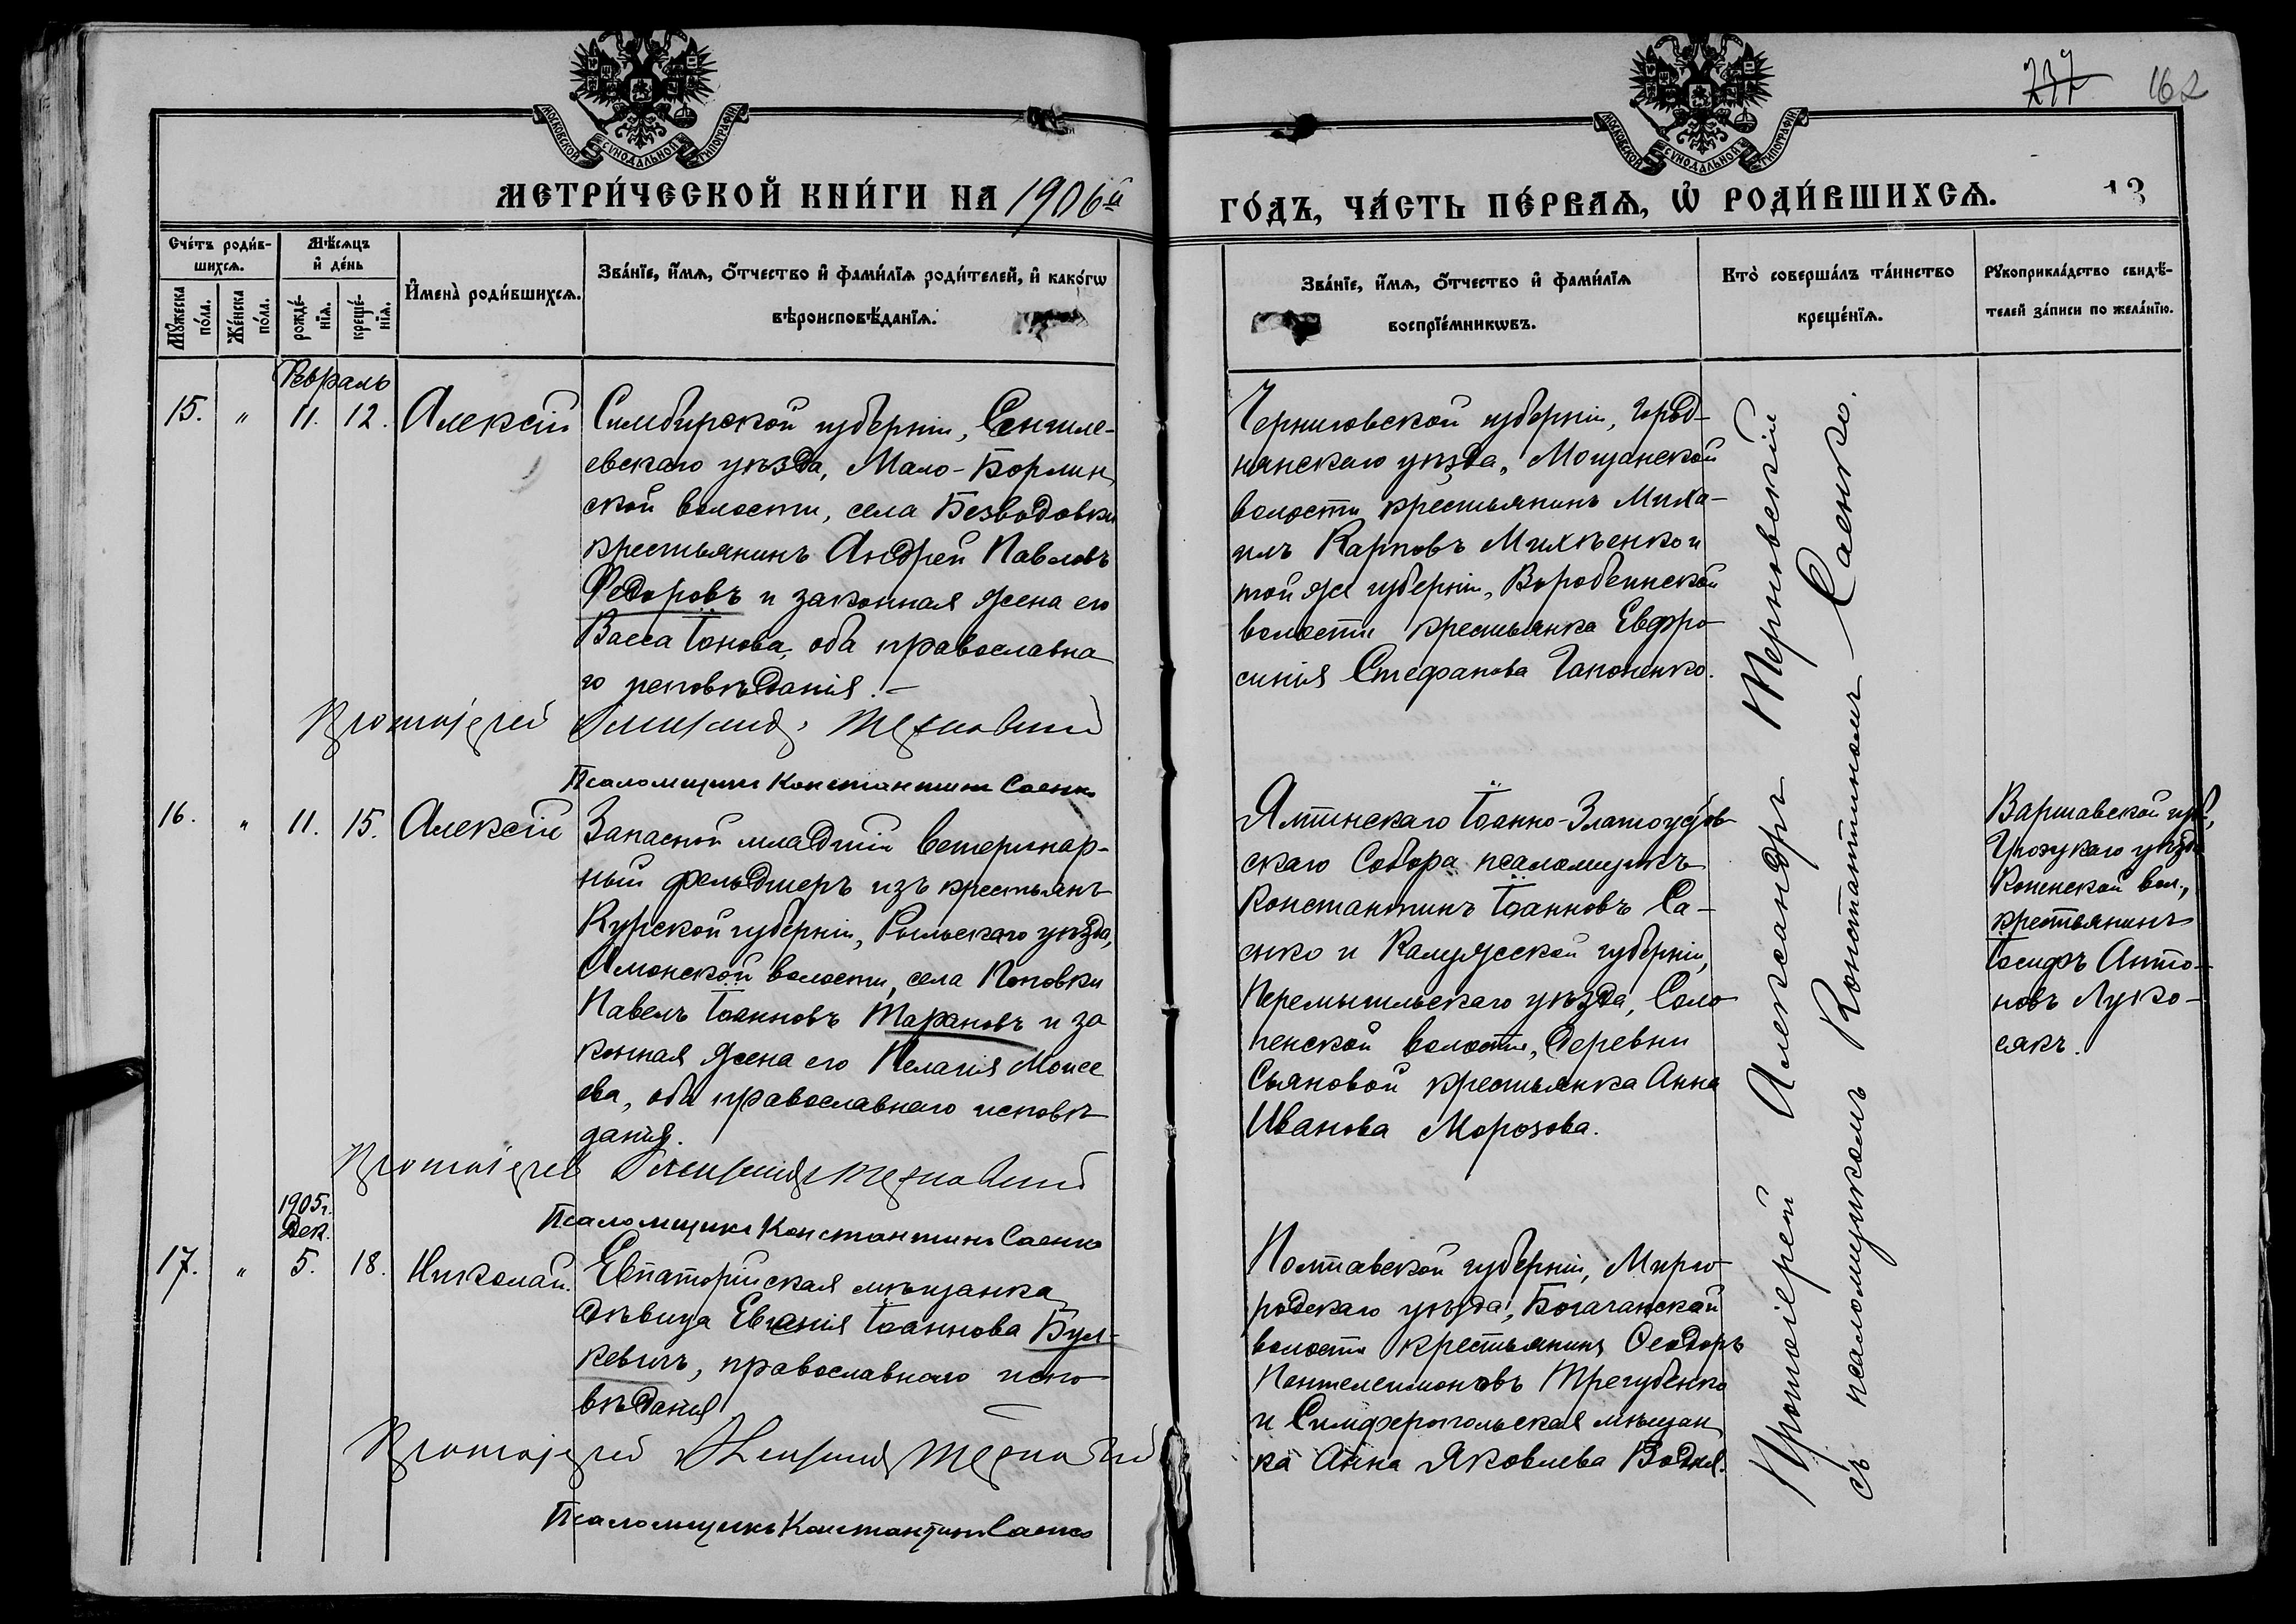 737 162
МОСКОВСКОЙ СѴНОДАЛЬНОЙ ТИПОГРАФІИ
МОСКОВСКОЙ СѴНОДАЛЬНОЙ ТИПОГРАФІИ
МЕТРИ́ЧЕСКОЙ КНИ́ГИ НА 1906й
ГО́ДЪ, ЧА́СТЬ ПЕ́РВАѦ, Ѡ҆ РОДИ́ВШИХСѦ.
13
Сче́тъ роди́в-
шихсѧ.
Мꙋ́жеска
по́ла.
Же́нска
по́ла.
Мѣ́сѧцъ
и҆ де́нь
рожде́-
нїѧ.
креще́-
нїѧ.
И҆мена̀ роди́вшихсѧ.
Зва́нїе, и҆́мѧ, ѻ҆́тчество и҆ фами́лїѧ роди́телей, и҆ како́гѡ
вѣроисповѣ́данїѧ.
Зва́нїе, и҆́мѧ, ѻ҆́тчество и҆ фами́лїѧ
воспрїе́мникѡвъ.
Кто̀ соверша́лъ та́инство
креще́нїѧ.
Рꙋкоприкла́дство свидѣ́-
телей за́писи по жела́нїю.
Февраль
15. " 11. 12. Алексій
Симбирской губерніи, Сенгиле-
евскаго уѣзда, Мало-Борлин
ской волости, села Безводовки
крестьянинъ Андрей Павловъ
Федоровъ и законная жена его
Васса Іонова, оба православна
го исповѣданія.–
Протоіерей Александръ Терновский
Псаломщикъ Константинъ Саенко
Черниговской губерніи, Город-
нянскаго уѣзда,
волости крестьянинъ Миха-
илъ Карповъ Михѣенко и
той же губерніи,
волости крестьянка Евфро
синія Стефанова Гапоненко.
16. " 11. 15. Алексій
Запасной младшій ветеринар-
ный фельдшеръ изъ крестьянъ
Курской губерніи, Рыльскаго уѣзда,
Амонской волости, села Поповки
Павелъ Іоанновъ Тарановъ и за
конная жена его Пелагія Моисе
ева, оба православнаго исповѣ
данія.
Протоіерей Александръ Терновский
Псаломщикъ Константинъ Саенко
Ялтинскаго Іоанно-Златоустов
скаго Собора псаломщикъ
Константинъ Іоанновъ Са-
енко и Калужской губерніи,
Перемышльскаго уѣзда, Соло
пенской волости, деревни
Сьяновой крестьянка Анна
Иванова Морозова.
Варшавской губ.,
уѣзда
вол.,
крестьянинъ
Іосифъ Анто-
новъ Луко-
сякъ.
1905г.
Дек.
17. " 5. 18. Николай.
Евпаторійская мѣщанка
дѣвица Евгенія Іоаннова Бул-
кевичъ, православнаго испо
вѣданія
Протоіерей Александръ Терновский
Псаломщикъ Константинъ Саенко
Полтавской губерніи, Мирго
родскаго уѣзда, Богачанской
волости крестьянинъ Ѳеодоръ
Пантелеимоновъ Трегубенко
и Симферопольская мѣщан
ка Анна Яковлева
Протоіерей Александръ Терновскій
съ псаломщикомъ Константиномъ Саенко.